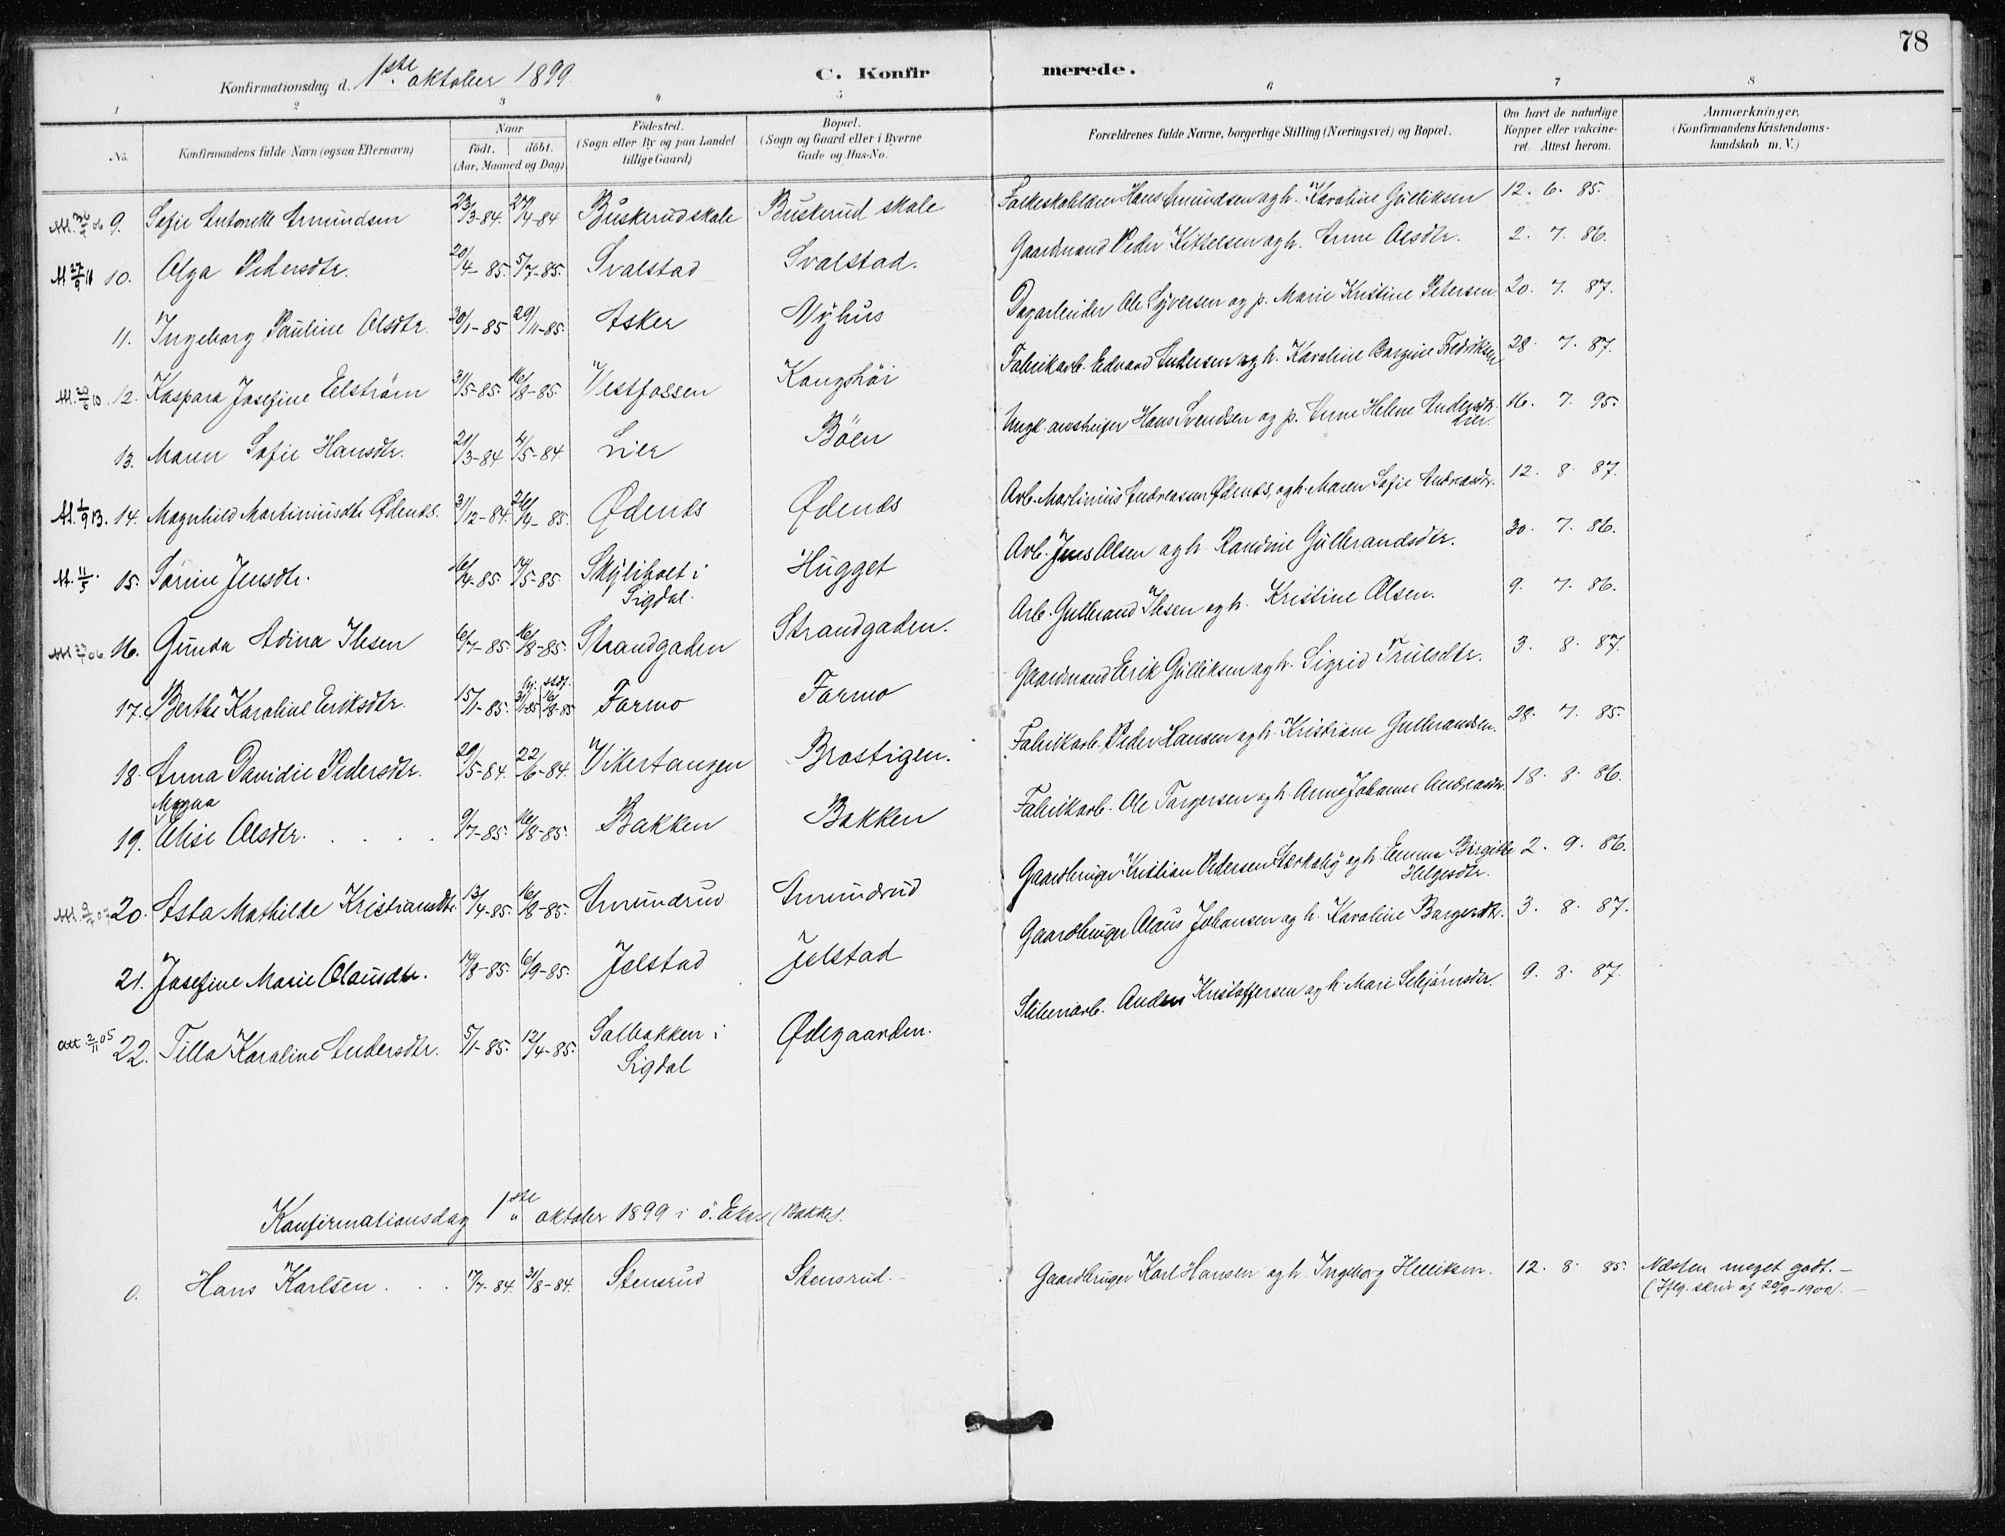 78
Konfirmationsdag d. 1ste oktober 1899
C. Konfirmerede.
1 2 3 4 5 6 7 8
No. Konfirmandens fulde Navn (ogsaa Efternavn) Naar født. döbt. (Aar, Maaned og Dag) Födested. (Sogn eller By og paa Landet tillige Gaard) Bopæl. (Sogn og Gaard eller i Byerne Gade og Hus-No. Forældrenes fulde Navne, borgerlige Stilling (Næringsvei) og Bopæl. Om havt de naturlige Kopper eller vakcineret. Attest herom. Anmærkninger. (Konfirmandens Kristendomskundskab m. V.)
9. Sofie Antonette Amundsen 23/3-84 27/4-84 Buskerudskole Buskerud skole Folkeskolelærer Hans Amundsen og h. Karoline Gulliksen 12. 6. 85.
10. Olga Pedersdtr. 20/4-85. 5/7-85. Svalstad Svalstad. Gaardmand Peder Kittelsen og h. Anne Olsdtr. 2. 7. 86.
11. Ingeborg Pauline Olsdtr. 30/1-85 29/11-85. Asker Nyhus Dagarbeider Ole Syversen og p. Marie Kristine Petersen 20. 7. 87.
12. Kaspara Josefine Elstrøm 31/5-85. 16/8-85. Vestfossen Kongshöi Fabrikarb. Edvard Andersen og h. Karoline Borgine Fredriksen 28. 7. 87.
13. Maren Sofie Hansdtr. 21/3-84 4/5-84 Lier Böen Ungk. anstryger Hans Svendsen og p. Anne Helene Andersdtr. Lier. 16. 7. 95.
14. Magnhild Martiniusdtr Ødends. 31/12-84. 26/4-85. Ødends Ødends Arb. Martinius Andreassen Ødends, og h. Maren Sofie Andreasdtr. 12. 8. 87.
15. Sørine Jensdtr. 16/4-85. 17/5-85 Skyliholt i Sigdal. Hugget Arb. Jens Olsen og h. Randine Gulbrandsdtr. 30. 7. 86.
16. Gunda Adina Ibsen 6/7-85 16/8-85. Strandgaden Strandgaden. Arb. Gulbrand Ibsen og h. Kristine Olsen. 9. 7. 86.
17. Berthe Karoline Eriksdtr. 15/1-85. 31/1-85 16/8-85 Formo Formo Gaardmand Erik Gulliksen og h. Sigrid Trulsdtr. 3. 8. 87.
18. Anna Davidie Pedersdtr. 20/5-84. 22/6-84. Vikertangen Brostigen. Fabrikarb. Peder Hansen og h. Kristiane Gulbrandsen. 28. 7. 85.
Magna
19. Elise Olsdtr. 9/7-85. 16/8-85. Bakken Bakken Fabrikarb. Ole Torgersen og h. Anne Johanne Andreasdtr. 18. 8. 86.
20. Asta Mathilde Kristiansdtr. 13/4-85. 16/8-85. Amundrud Amundrud Gaardbruger Kristian Pedersen og h. Emma Birgitte Helgesdtr. 2. 9. 86.
21. Josefine Marie Olausdtr. 17/8-85. 6/9-85. Jelstad Jelstad Gaardbruger Olaus Johansen og h. Karoline Borgersdtr. 3. 8. 87.
22. Tilla Karoline Andersdtr. 5/1-85. 12/4-85. Solbakken i Sigdal Ødegaarden. Sliberiarb. Anders Kristoffersen og h. Mari Sebjørnsdtr. 9. 8. 87.
Konfirmationsdag 1ste oktober 1899 i ö. Eker (Bakke).
0. Hans Karlsen 17/7-84. 31/8-84. Stensrud Stensrud. Gaardbruger Karl Hansen og h. Ingeborg Helliksen. 12. 8. 85. Næsten meget godt.
(Iflg. skriv af 20/9-1900.